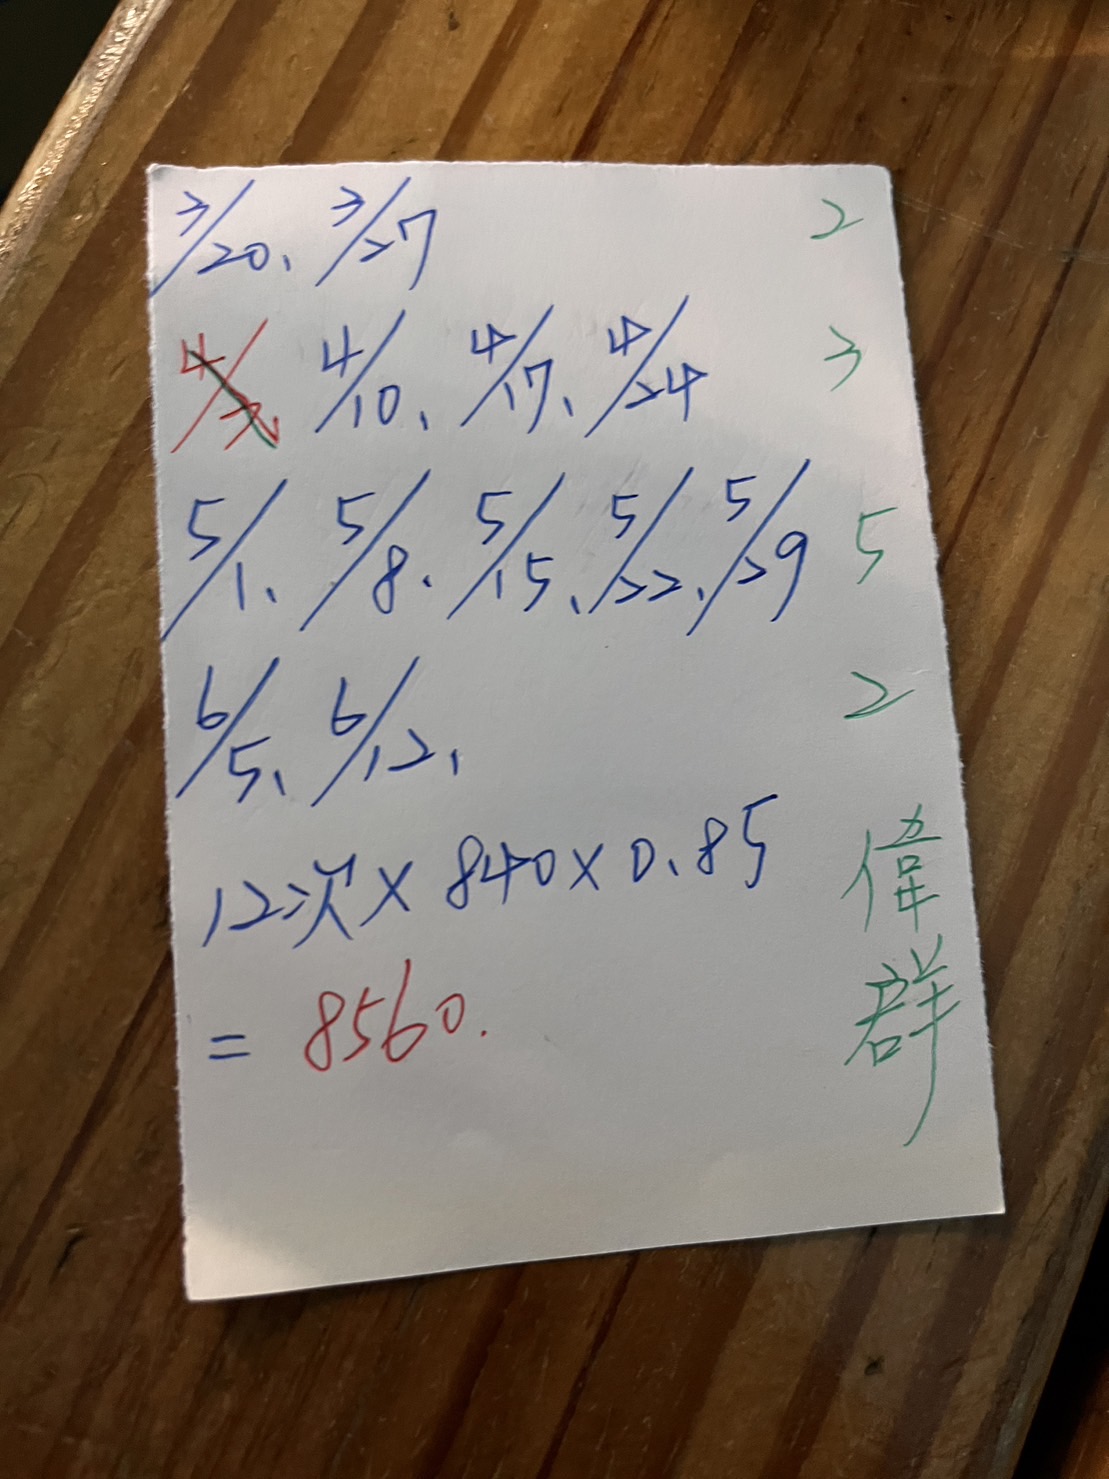 3/20、3/27 2
4/3、4/10、4/17、4/24 3
5/1、5/8、5/15、5/22、5/29 5
6/5、6/12、 2
12次×840×0.85
= 8560.
偉群